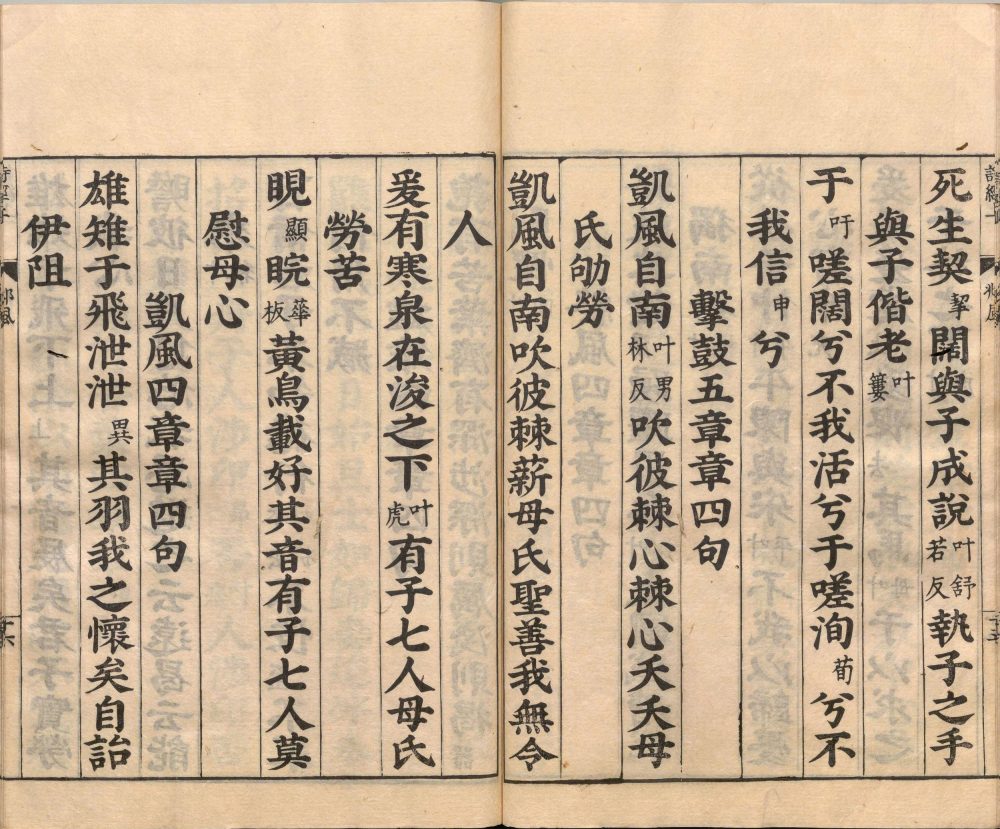 死生契挈闊與子成說叶舒若反執子之手
與子偕老叶簍
于吁嗟闊兮不我活兮于嗟洵荀兮不
我信申兮
擊鼓五章章四句
凱風自南叶男林反吹彼棘心棘心夭夭母
氏劬勞
凱風自南吹彼棘薪母氏聖善我無令
人
爰有寒泉在浚之下叶虎有子七人母氏
勞苦
睍顯睆華板黃鳥載好其音有子七人莫
慰母心
凱風四章章四句
雄雉于飛泄泄異其羽我之懷矣自詒
伊阻